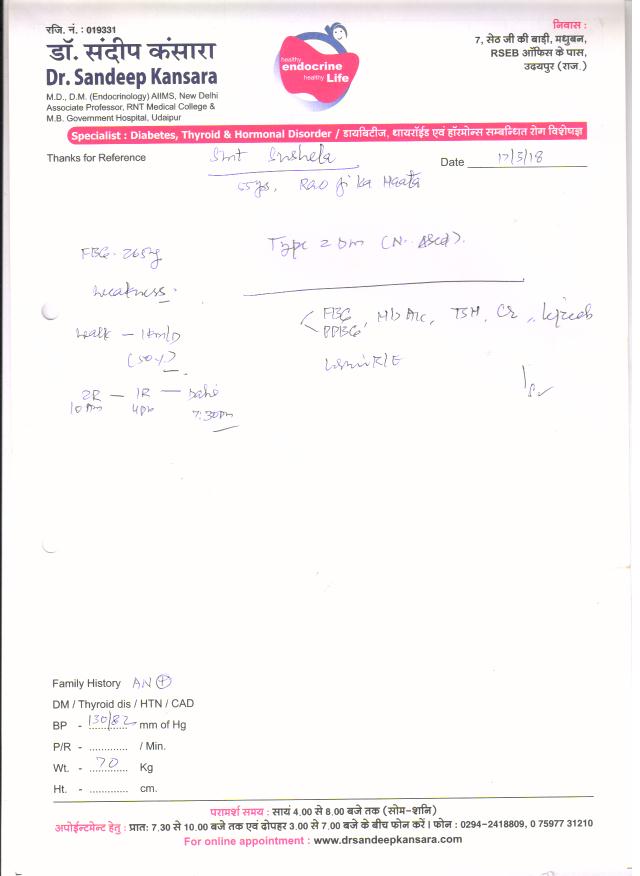 रजि. नं. : 019331
डॉ. संदीप कंसारा
Dr. Sandeep Kansara
M.D., D.M. (Endocrinology) AIIMS, New Delhi
Associate Professor, RNT Medical College &
M.B. Government Hospital, Udaipur
healthy
endocrine
healthy Life
निवास :
7, सेठ जी की बाड़ी, मधुबन,
RSEB ऑफिस के पास,
उदयपुर (राज.)
Specialist : Diabetes, Thyroid & Hormonal Disorder / डायबिटीज, थायरॉईड एवं हॉरमोन्स सम्बन्धित रोग विशेषज्ञ
Thanks for Reference
Smt
Date 17/3/18
55 yrs, Rao ji ka Haata
Type 2 DM
FBG - 265
Weakness.
FBG
PPBG, HbA1c, TSH, Cr,
Walk -
Urine R/E
2R — 1R —
10 Am 4 pm 7:30 pm
Family History
DM / Thyroid dis / HTN / CAD
BP - 130/82 mm of Hg
P/R - ............. / Min.
Wt. - 70 Kg
Ht. - ............. cm.
परामर्श समय : सायं 4.00 से 8.00 बजे तक (सोम-शनि)
अपोईन्टमेन्ट हेतु : प्रातः 7.30 से 10.00 बजे तक एवं दोपहर 3.00 से 7.00 बजे के बीच फोन करें। फोन : 0294-2418809, 0 75977 31210
For online appointment : www.drsandeepkansara.com